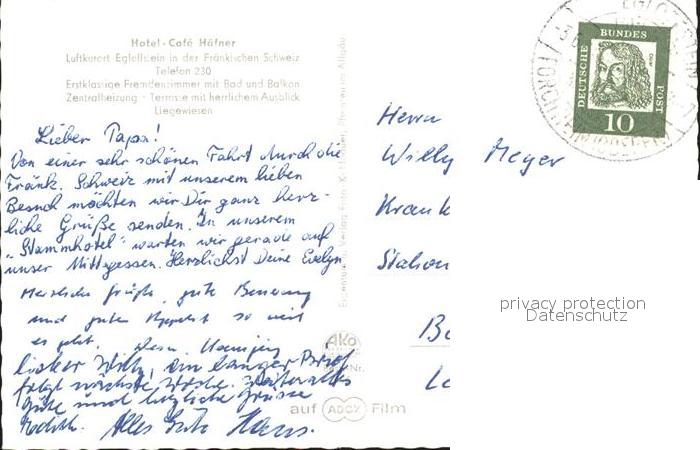 Hotel-Café Häfner
Luftkurort Egloffstein in der Fränkischen Schweiz
Telefon 230
Erstklassige Fremdenzimmer mit Bad und Balkon
Zentralheizung - Terrasse mit herrlichem Ausblick
Liegewiesen
Lieber Papa!
Von einer sehr schönen Fahrt durch die
Fränk. Schweiz mit unserem lieben
Besuch möchten wir Dir ganz herz-
liche Grüße senden. In unserem
"Stammhotel" warten wir gerade auf
unser Mittagessen. Herzlichst Deine Evelyn
Herzliche Grüße, gute Besserung
und guten Appetit so weit
es geht. Dein
lieber Willy, ein langer Brief
folgt nächste Woche. Weiter alles
Gute und herzliche Grüsse
Alles Gute Hans.
Herrn
Willy Meyer
Krank
Station
DEUTSCHE BUNDES POST
10
privacy protection
Datenschutz
Ako
auf ADOX Film